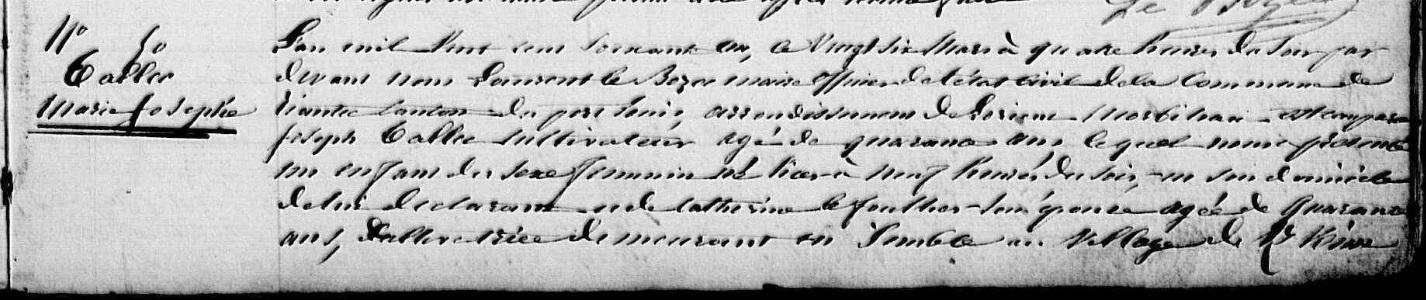 N° 50
Tallec
Marie Josephe
L'an mil huit cent soixante un, le vingt six Mars à quatre heures du soir par
devant nous Laurent le Bozec maire officier de l'état civil de la Commune de
Riantec canton du port Louis, arrondissement de Lorient Morbihan est comparu
Joseph Tallec cultivateur agé de quarante ans lequel nous présente
un enfant du sexe féminin né hier à neuf heures du soir, en son domicile
de lui déclarant et de Catherine le son épouse agée de quarante
ans, cultivatrice demeurant en semble au village de